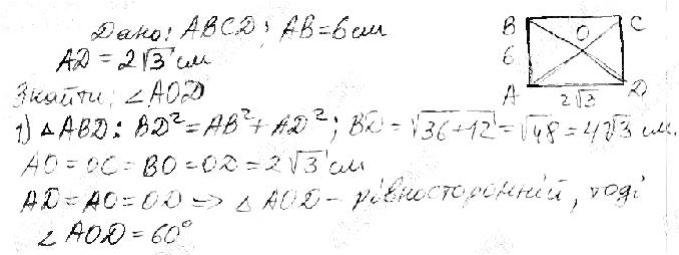 Дано: ABCD; AB=6см
AD = 2√3 см
Знайти: ∠AOD
1) △ABD: BD²=AB²+AD²; BD=√36+12=√48=4√3 см.
AO=OC=BO=OD=2√3 см
AD=AO=OD => △AOD - рівносторонній, тоді
∠AOD=60°
B C
O
6
A D
2√3